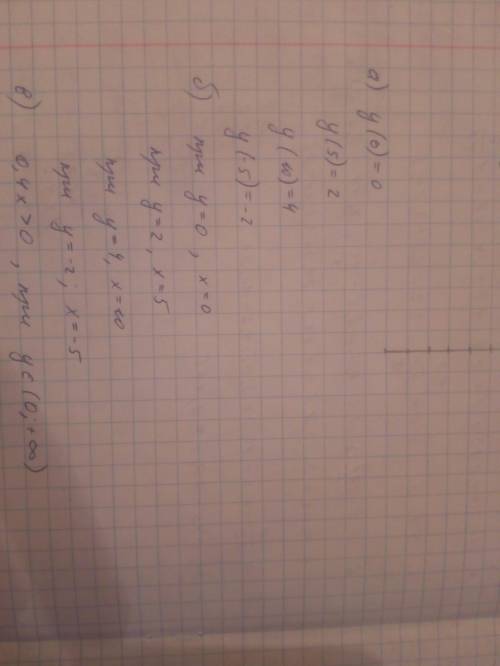 а) y(0)=0
y(5)=2
y(10)=4
y(-5)=-2
б) при y=0, x=0
при y=2, x=5
при y=4, x=10
при y=-2, x=-5
в) 0,4x>0, при y ∈ (0; +∞)